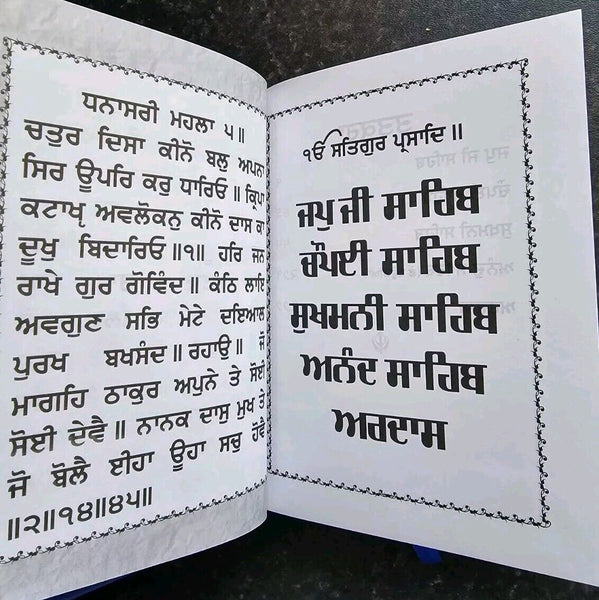 ਧਨਾਸਰੀ ਮਹਲਾ ੫॥
ਚਤੁਰ ਦਿਸਾ ਕੀਨੋ ਬਲੁ ਅਪਨਾ
ਸਿਰ ਊਪਰਿ ਕਰੁ ਧਾਰਿਓ॥ ਕ੍ਰਿਪਾ
ਕਟਾਖ੍ਯ ਅਵਲੋਕਨੁ ਕੀਨੋ ਦਾਸ ਕਾ
ਦੂਖੁ ਬਿਦਾਰਿਓ॥੧॥ ਹਰਿ ਜਨ
ਰਾਖੇ ਗੁਰ ਗੋਵਿੰਦ॥ ਕੰਠਿ ਲਾਇ
ਅਵਗੁਣ ਸਭਿ ਮੇਟੇ ਦਇਆਲ
ਪੁਰਖ ਬਖਸੰਦ॥ ਰਹਾਉ॥ ਜੋ
ਮਾਗਹਿ ਠਾਕੁਰ ਅਪੁਨੇ ਤੇ ਸੋਈ
ਸੋਈ ਦੇਵੈ॥ ਨਾਨਕ ਦਾਸੁ ਮੁਖ ਤੇ
ਜੋ ਬੋਲੈ ਈਹਾ ਊਹਾ ਸਚੁ ਹੋਵੈ
॥੨॥੧੪॥੪੫॥
ੴ ਸਤਿਗੁਰ ਪ੍ਰਸਾਦਿ॥
ਜਪੁ ਜੀ ਸਾਹਿਬ
ਚੌਪਈ ਸਾਹਿਬ
ਸੁਖਮਨੀ ਸਾਹਿਬ
ਅਨੰਦ ਸਾਹਿਬ
ਅਰਦਾਸ